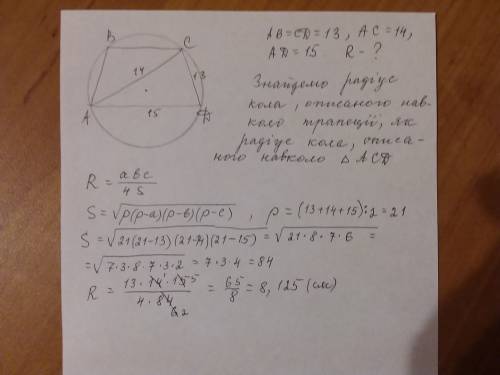 AB=CD=13, AC=14,
AD=15 R-?
B
C
14
13
15
A
D
Знайдемо радіус
кола, описаного нав-
коло трапеції, як
радіус кола, описа-
ного навколо △ACD
R = abc / 4S
S = √p(p-a)(p-b)(p-c) , p = (13+14+15):2 = 21
S = √21(21-13)(21-14)(21-15) = √21·8·7·6 =
= √7·3·8·7·3·2 = 7·3·4 = 84
R = 13·14·15 / 4·84 = 65/8 = 8,125 (см)